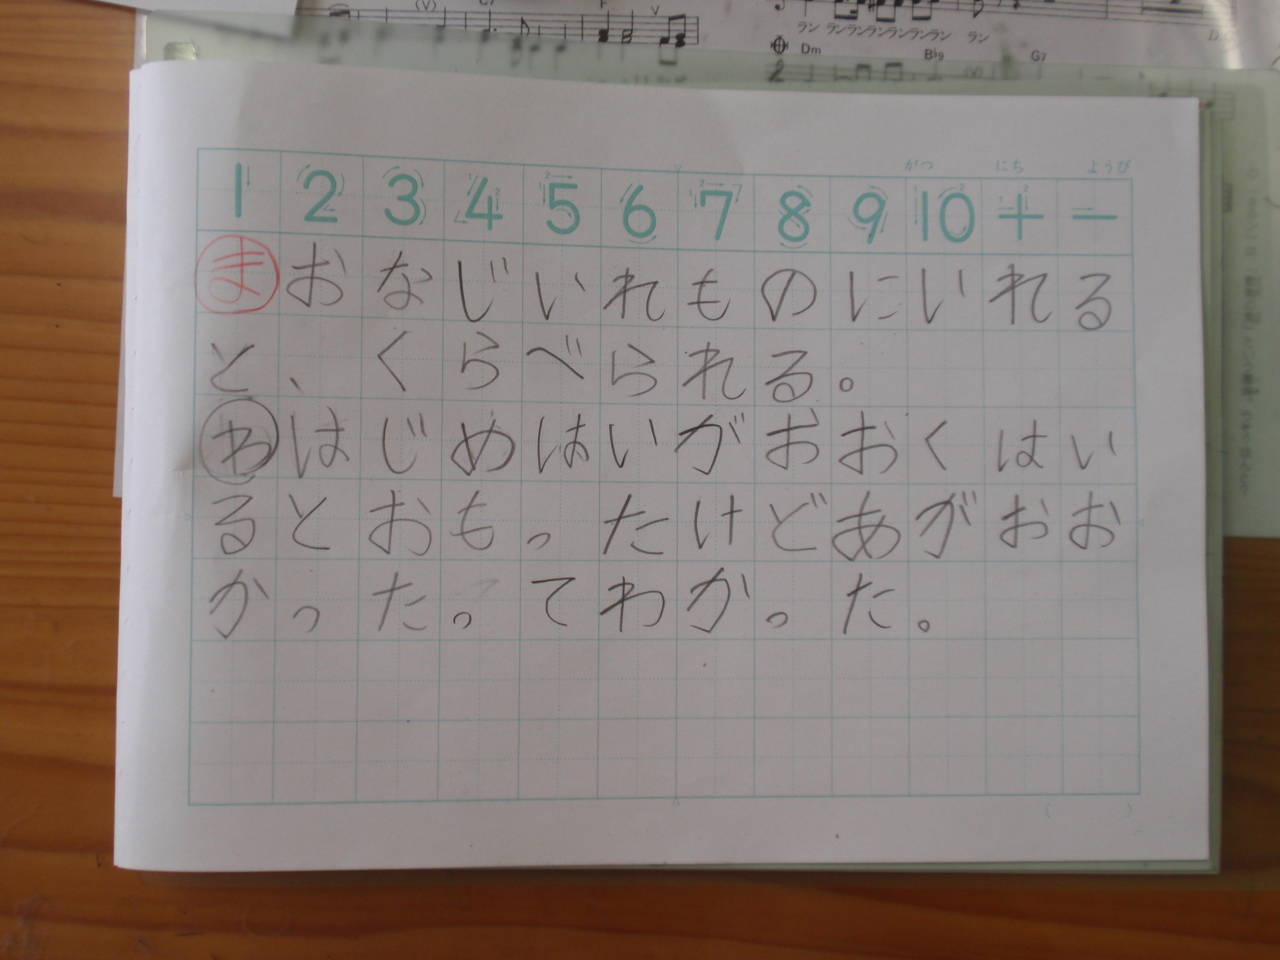 (V) C7 F V
ラン ランランランランランラン ラン
Dm B♭9 G7
がつ にち ようび
1 2 3 4 5 6 7 8 9 10 + −
ま おなじいれものにいれる
と、くらべられる。
わ はじめはいがおおくはい
るとおもったけどあがおお
かったってわかった。
( )